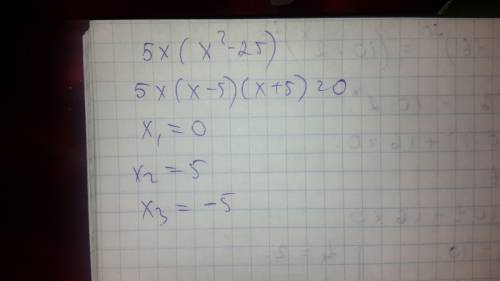 5x(x²-25)
5x(x-5)(x+5)=0
x₁=0
x₂=5
x₃=-5